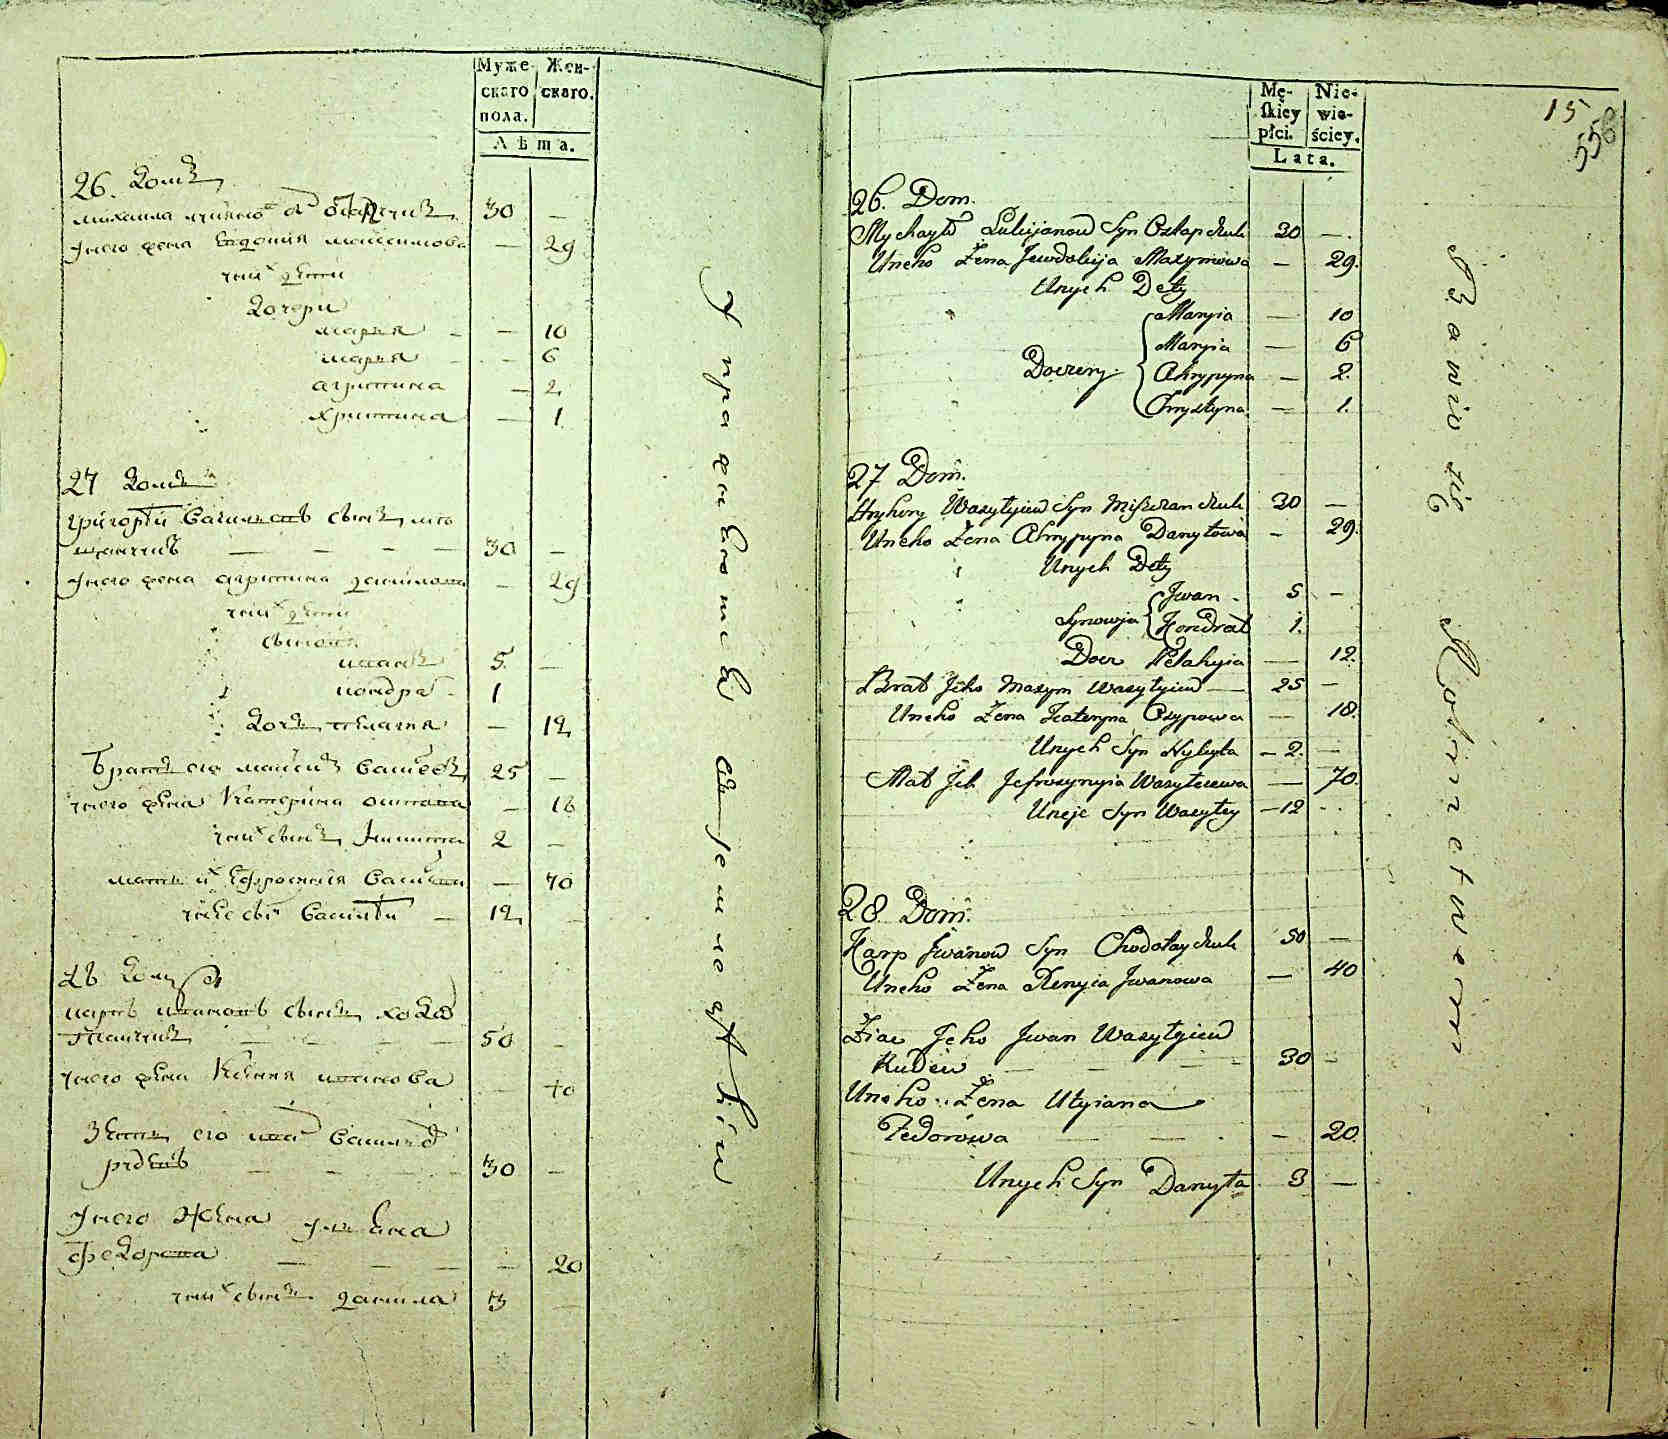 Муже- Жен-
скаго скаго.
пола.
Лѣта.
26. Домъ
михаила 30 —
унего жена Евдокия максимова — 29
уних дети
дочери
марья — — 10
марья — — 6
агрипина — 2
христина — 1
27 Домъ
григорти василевъ сынъ ми
щанчукъ — — — — 30 —
унего жена агрипина данилова — 29
уних дети
сыновя
иванъ 5 —
кондрат 1
Дочь пелагия — 12
братъ его максимъ васиевъ 25 —
унего жена Катерина осипова — 18
уних сынъ Никита 2 —
мать их Ефросиния васильева — 70
унее сынъ василти — 12
28 Домъ
карпъ ивановъ сынъ ходо
тайчукъ — — — — 50 —
унего жена Ксения иванова — 40
Зять его иван василев
рудевъ — — — — 30 —
унего Жена ульяна
федорова — — — — 20
уних сынъ данила 3
Mę- Nie-
skiey wie-
płci. ściey.
Lata.
15
558
26. Dom.
Mychayło Lukijanow Syn Oztapczuk 30 — .
Uneho Żena Jewdokija Maxymowa — 29.
Unych Dety
Maryia — 10
Maryia — 6
Doczery Ahrypyna — 2.
Chrystyna — 1.
27 Dom.
Hryhory Wasyłyiew Syn Miszczanczuk 30 —
Uneho Żena Ahrypyna Danyłowa — 29.
Unych Dety
Jwan — 5 —
Synowja Kondrat 1.
Docz Pełahyia — 12.
Brat Jeho Maxym Wasyłyiew — 25 —
Uneho Żena Kateryna Osypowa — 18.
Unych Syn Nykyta — 2. —
Mat Jch Jefrosynyia Wasyłewa — 70.
Uneje Syn Wasyły — 12
28 Dom.
Karp Jwanow Syn Chodotayczuk 50 —
Uneho Żena Xenyia Jwanowa — 40
Ziat Jeho Jwan Wasyłyiew
Rudew — — — 30 —
Uneho Żena Ulyiana
Fedorowa — — — 20.
Unych Syn Danyła 3 —